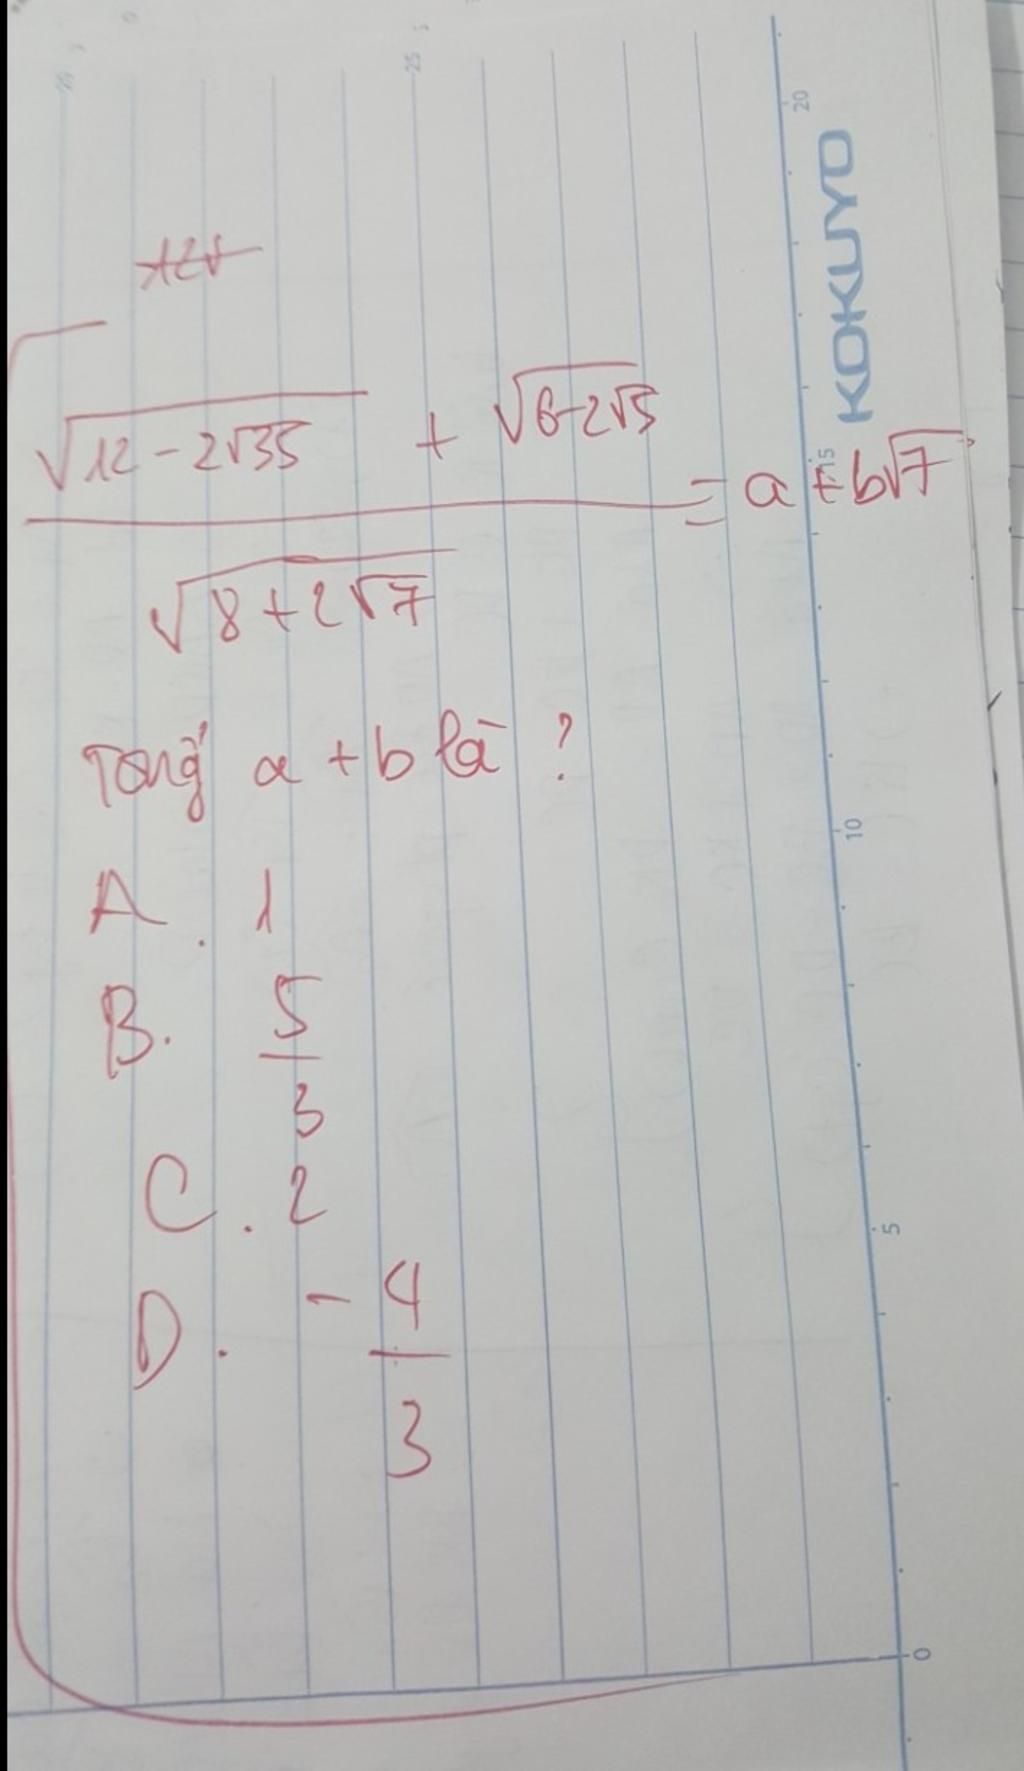 √(12-2√35) + √(6-2√5) / √(8+2√7) = a + b√7
Tổng a + b là ?
A. 1
B. 5/3
C. 2
D. -4/3
KOKUYO
20
15
10
5
0
25